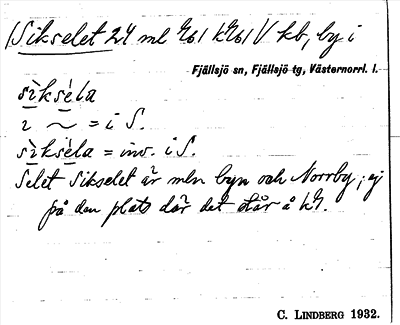 Sikselet 24 ml kb, by i
Fjällsjö sn, Fjällsjö tg, Västernorrl. l.
sìkséla
ı ~ = i S.
sìkséla = inv. i S.
Selet Sikselet är mln byn och Norrby; ej
på den plats där det står å
C. LINDBERG 1932.